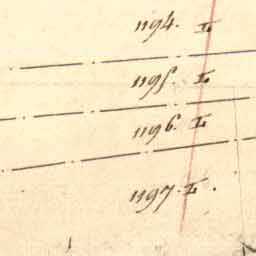 1194. I
1195. I
1196. I
1197. I.